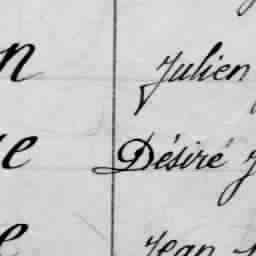 Julien
Désiré
Jean